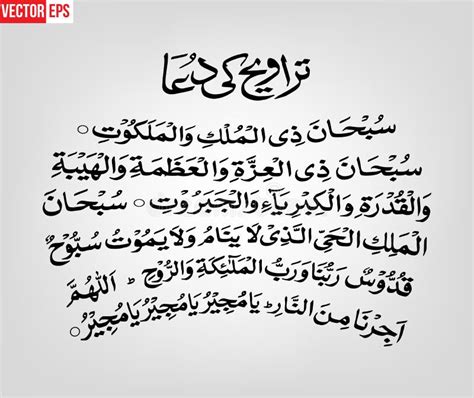 VECTOR EPS
تراویح کی دعا
سُبْحَانَ ذِی الْمُلْكِ وَالْمَلَكُوْتِ ○
سُبْحَانَ ذِی الْعِزَّةِ وَالْعَظَمَةِ وَالْهَيْبَةِ
وَالْقُدْرَةِ وَالْكِبْرِيَآءِ وَالْجَبَرُوْتِ ○ سُبْحَانَ
الْمَلِكِ الْحَیِّ الَّذِیْ لَا يَنَامُ وَلَا يَمُوْتُ سُبُّوْحٌ
قُدُّوْسٌ رَبُّنَا وَرَبُّ الْمَلٰٓئِكَةِ وَالرُّوْحِ ط اَللّٰهُمَّ
اَجِرْنَا مِنَ النَّارِ ط يَا مُجِيْرُ يَا مُجِيْرُ يَا مُجِيْرُ ○